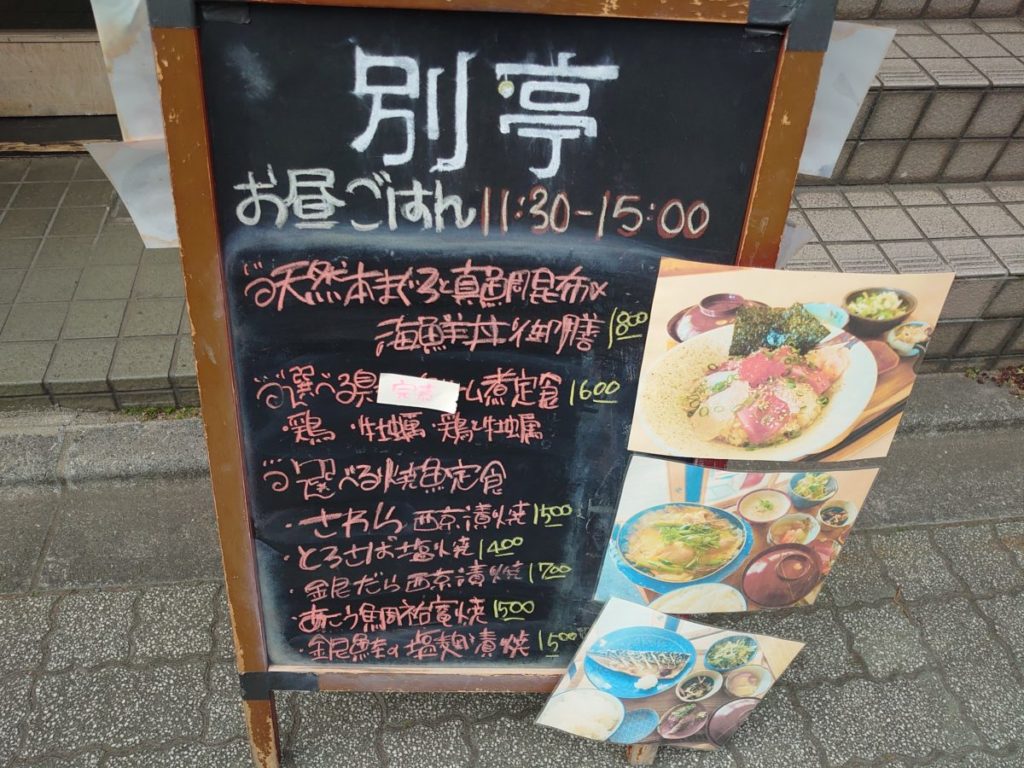 別亭
お昼ごはん 11:30-15:00
天然本まぐろと真色岡昆布〆
海鮮丼御膳 1800
選べる県 完売 ム煮定食 1600
・鶏 ・牡蠣 ・鶏と牡蠣
選べる焼魚定食
・さわら西京漬焼 1500
・とろさば塩焼 1400
・金目だら西京漬焼 1700
・あこう鯛祐庵焼 1500
・鮭の塩麹漬焼 1500